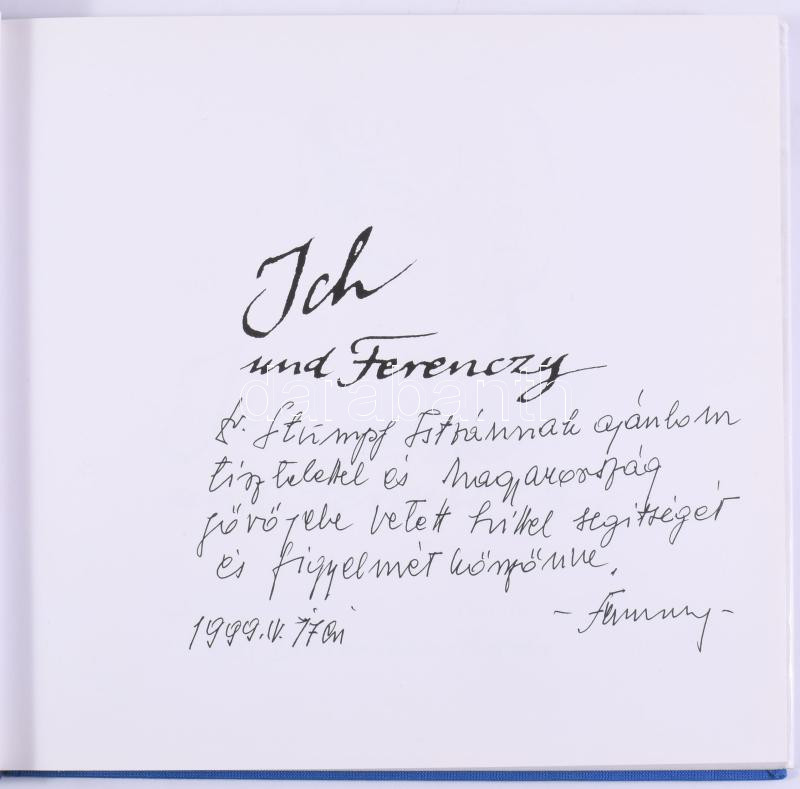 Ich
und Ferenczy
darabanth
Dr. Stumpf Istvánnak ajánlom
tisztelettel és Magyarország
jövőjébe vetett hittel segitségét
és figyelmét köszönve.
1999. IV. 17én
- Ferenczy -